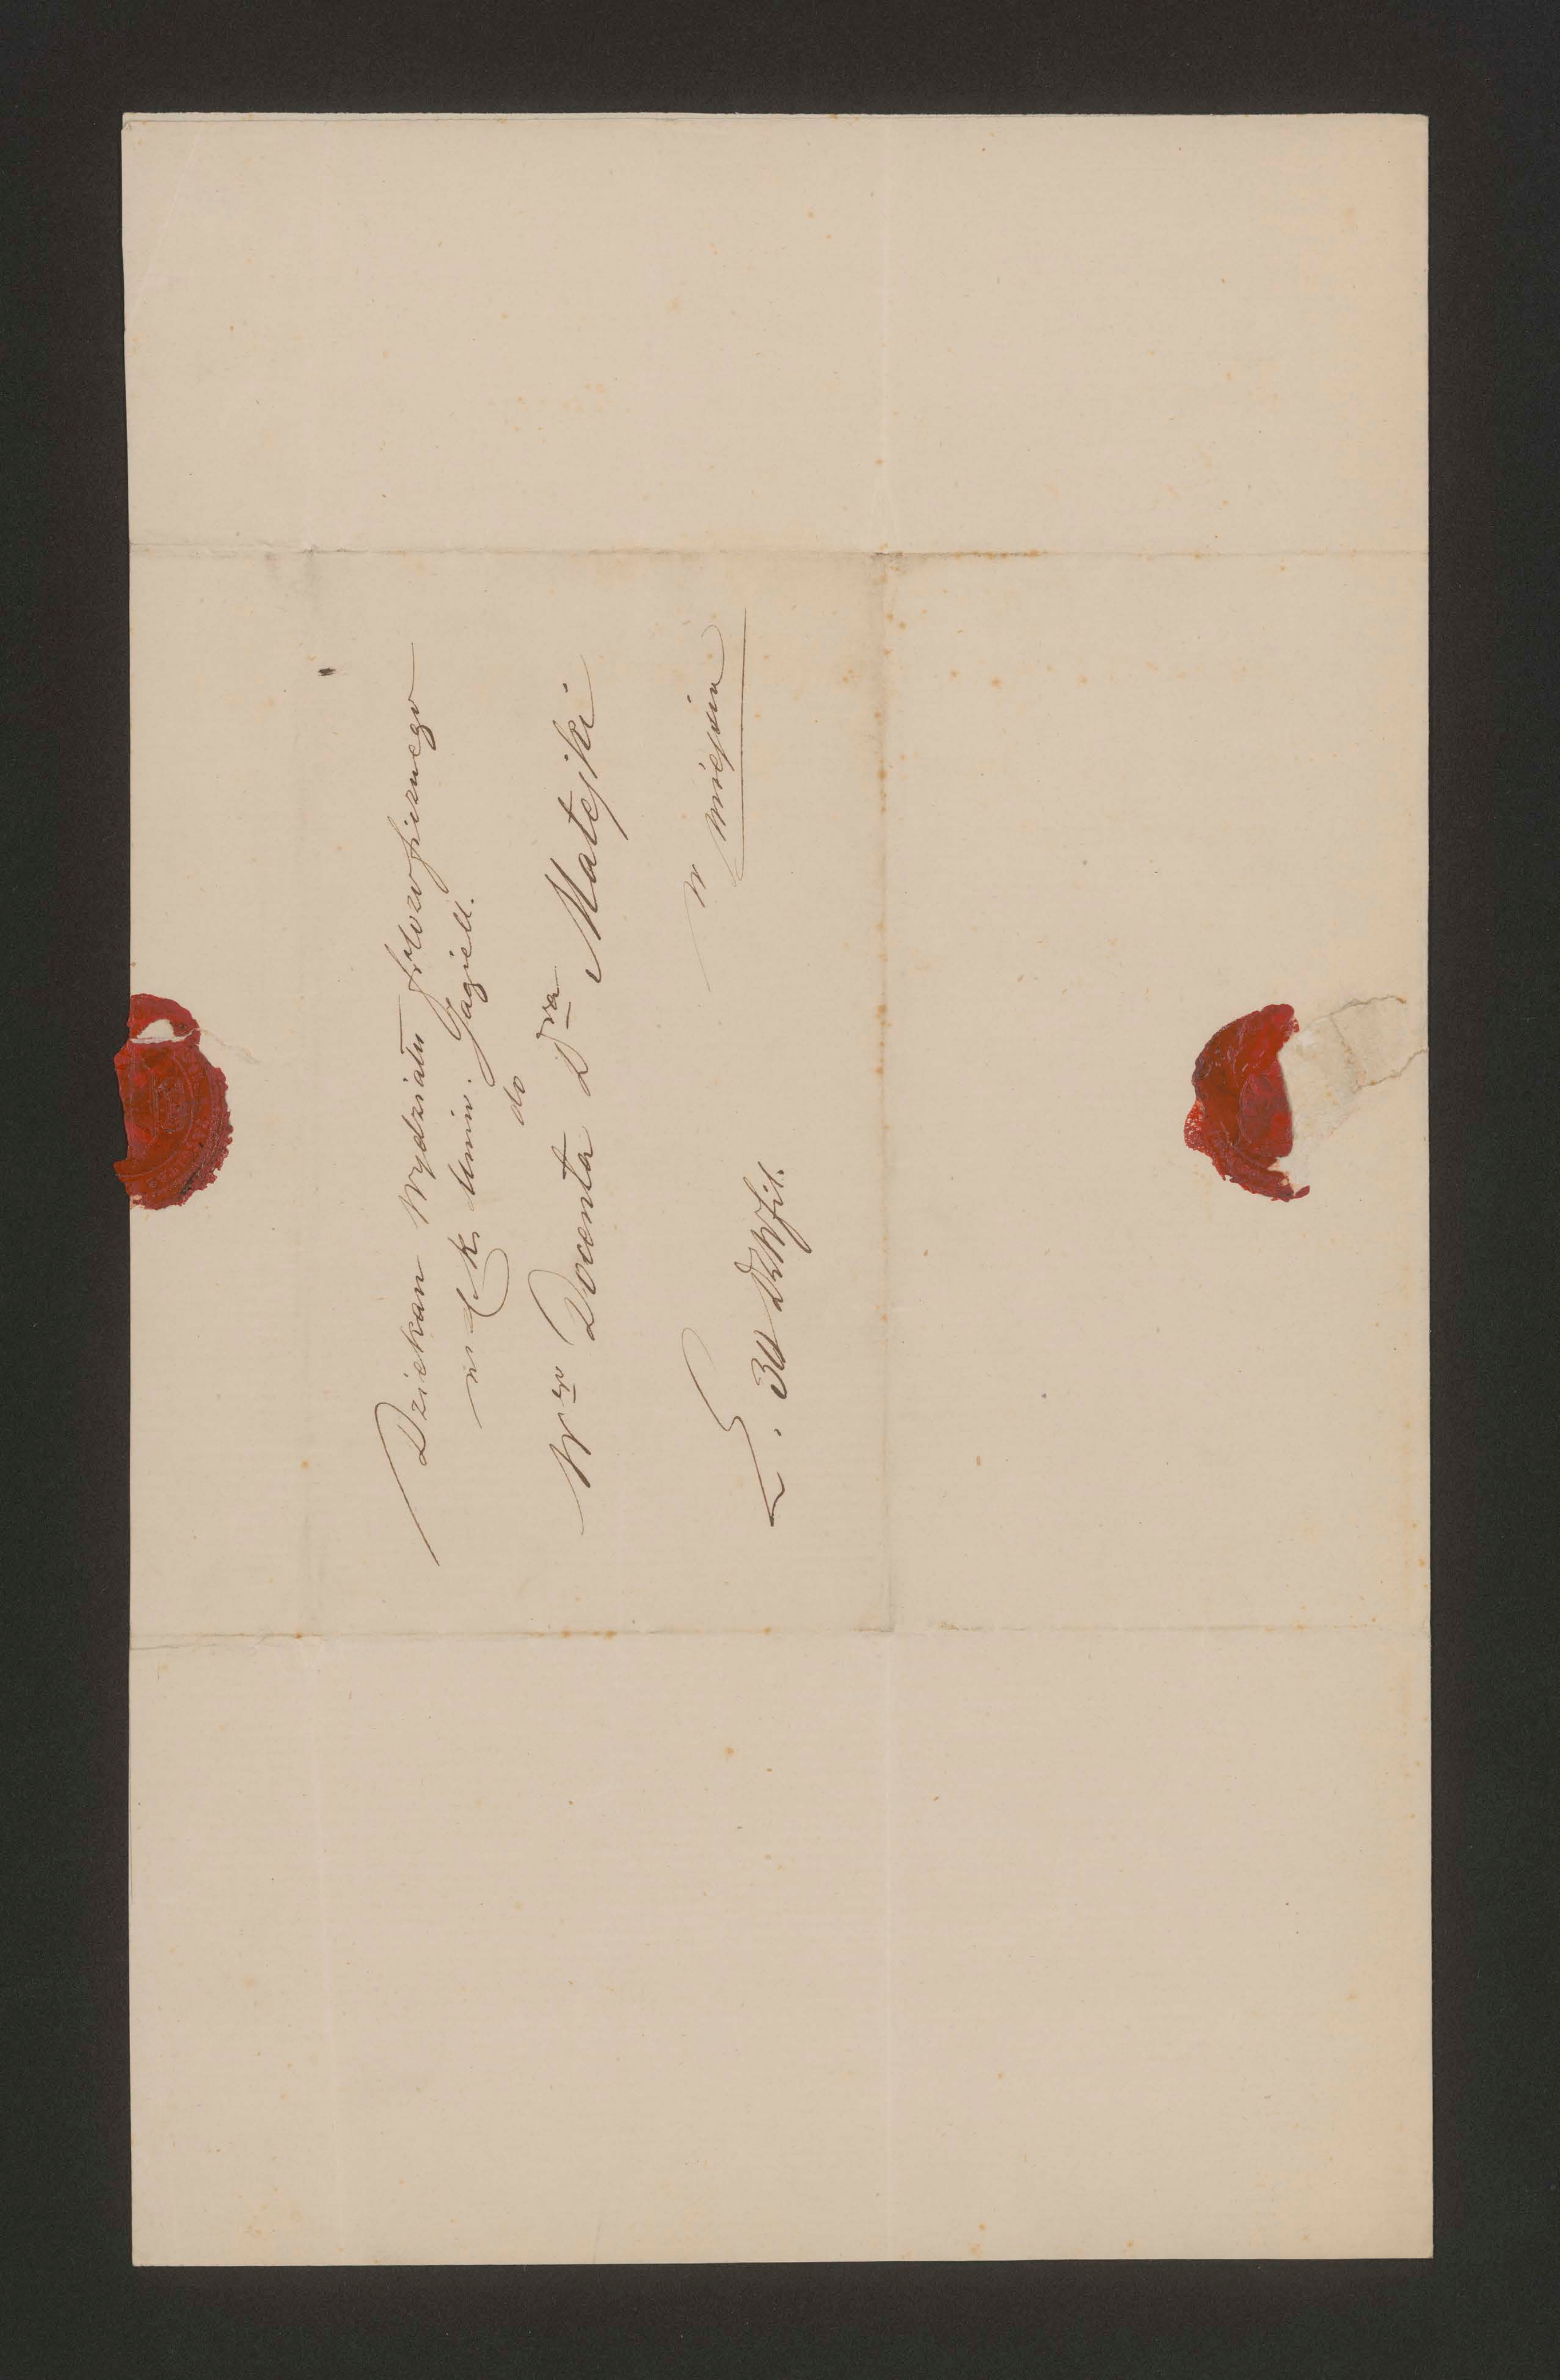 Dziekan Wydziału filozoficznego
w c. k. Uniw. Jagiell.
do
Wgo Docenta Dra Matejki
w
miejscu
L. 30 DWfil.